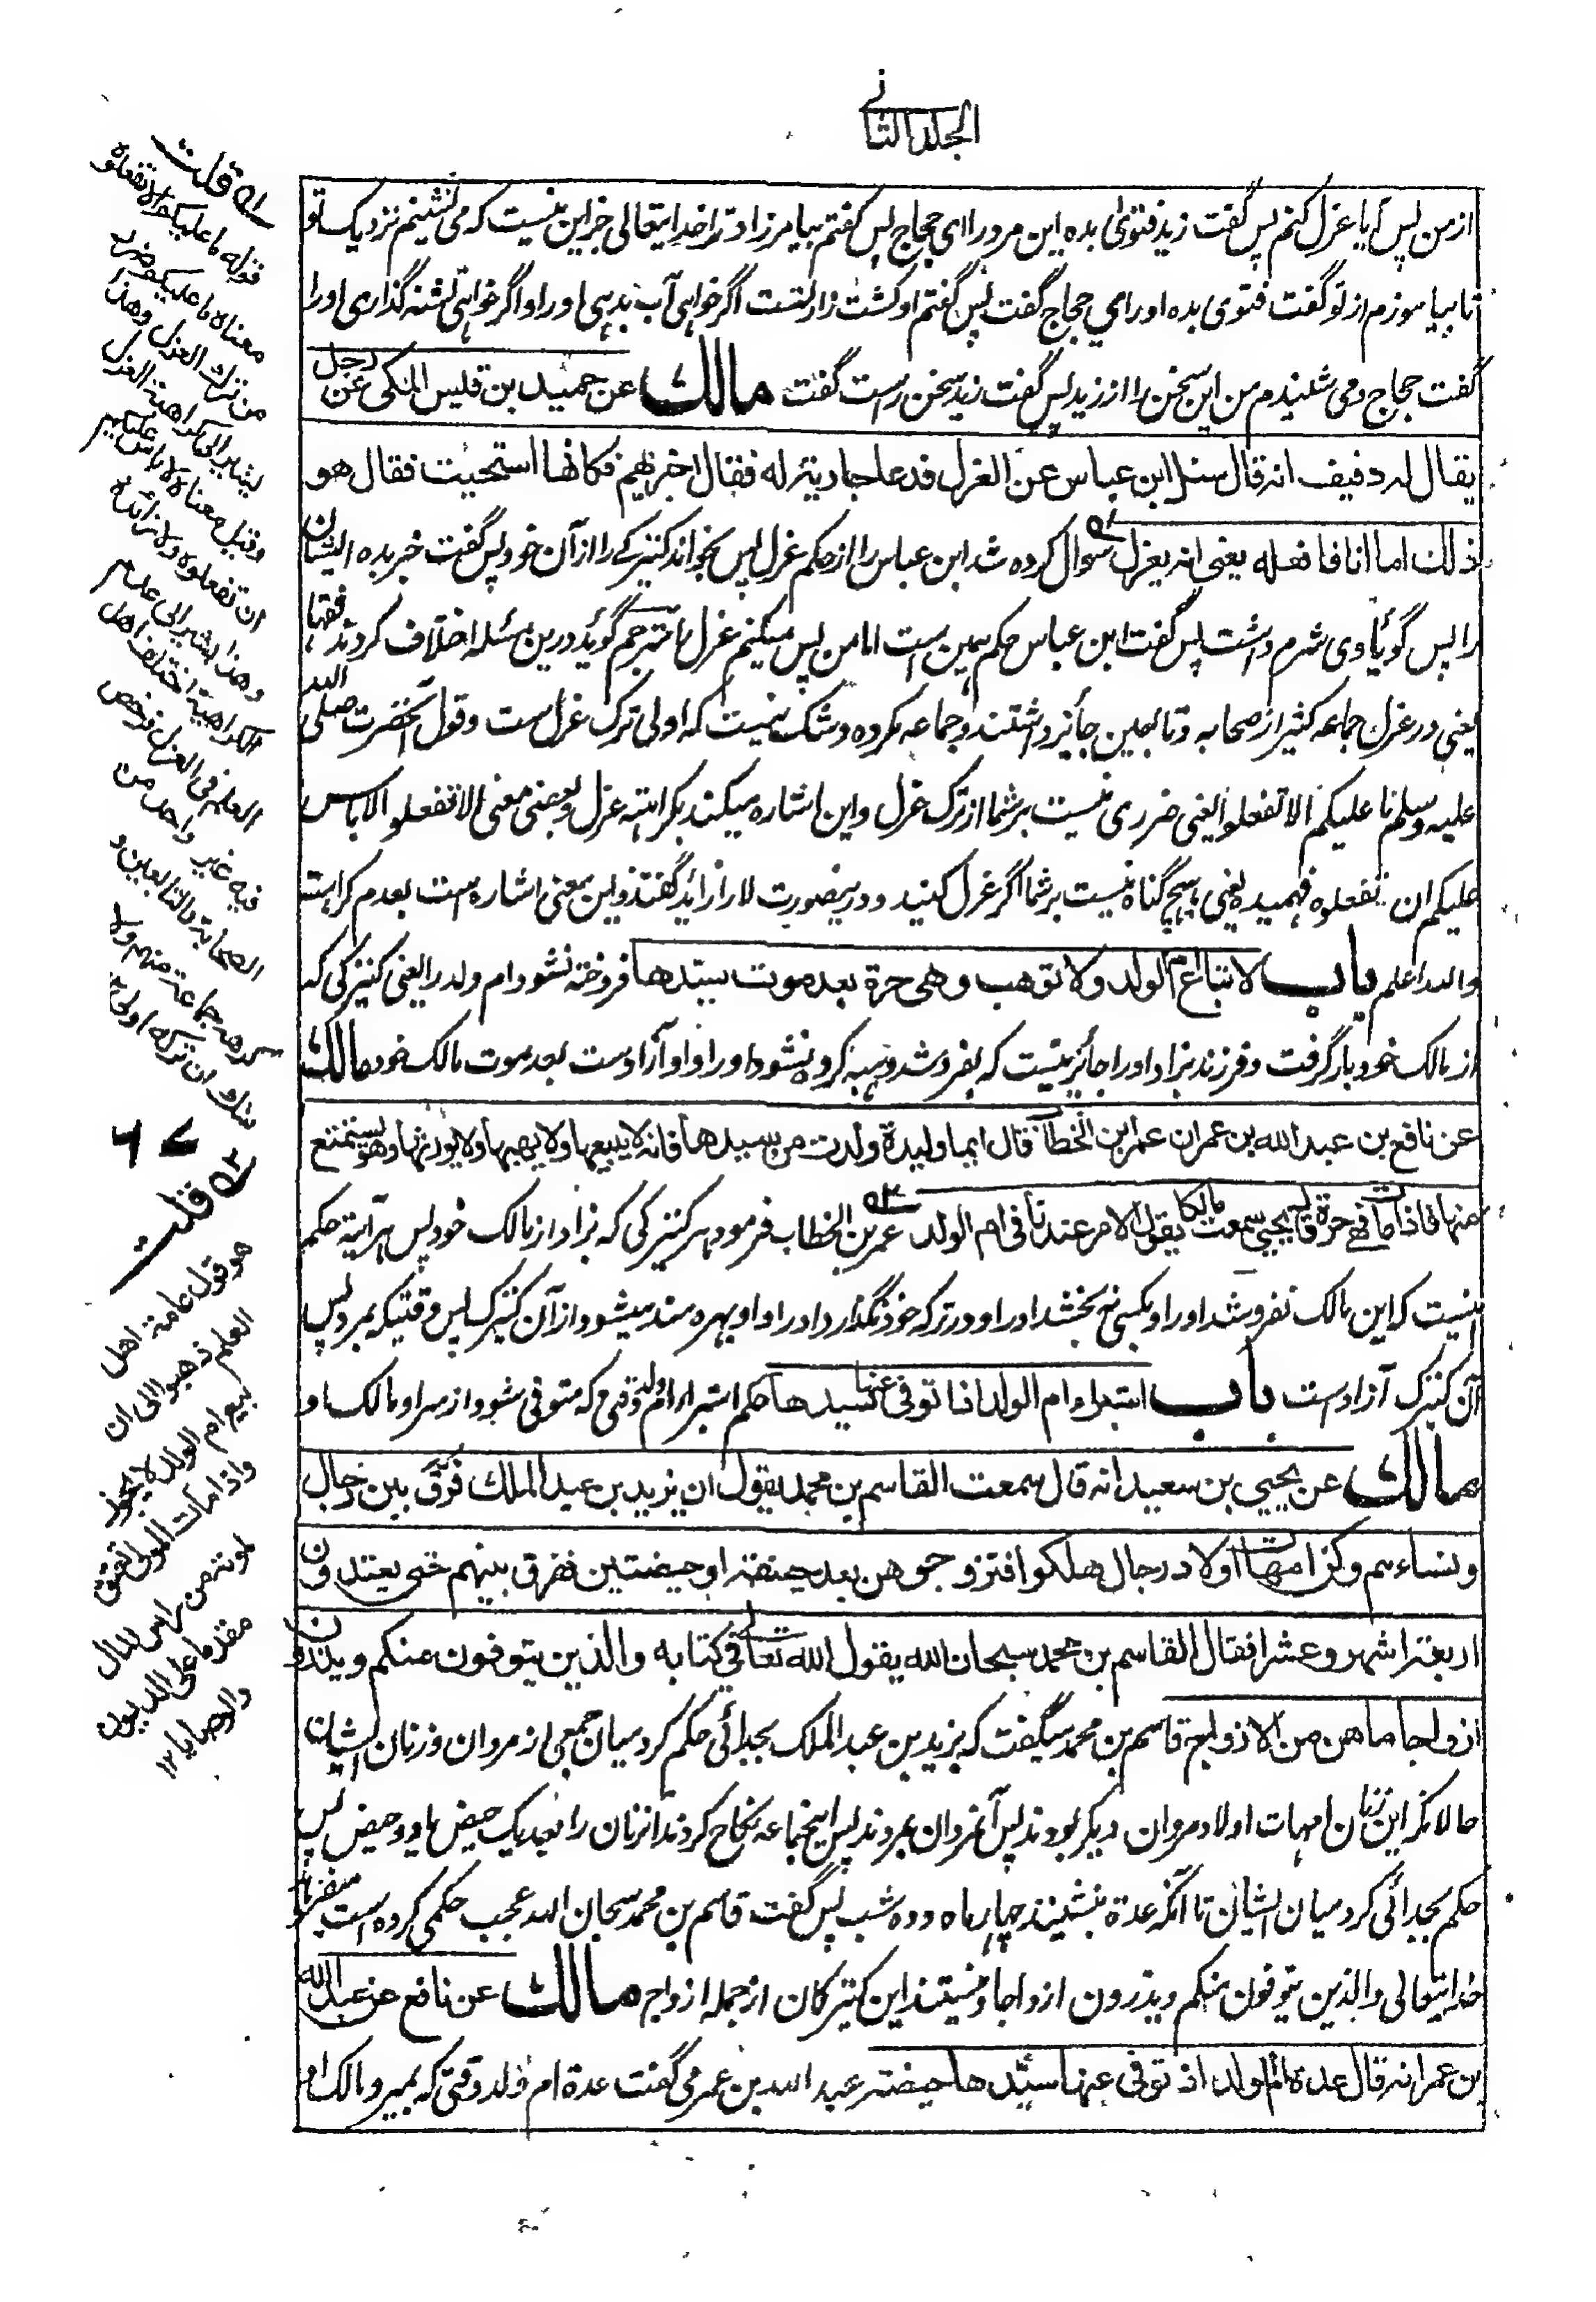 الجلد الثاني
از من پس آیا عزل کنم پس گفت زید فتوی بده این مرد را ای حجاج پس گفتم بیامرزاد ترا خدایتعالی جز این نیست که می نشینیم نزدیک تو
تا بیاموزم از تو گفت فتوی بده او را ای حجاج گفت پس گفتم او کشت زار تست اگر خواهی آب بدهی او را و اگر خواهی تشنه گذاری او را
گفت حجاج و می شنیدم من این سخن را از زید پس گفت زید سخن راست گفت مالک عن حمید بن قیس المکی عن رجل
یقال له دفیف انه قال سئل ابن عباس عن العزل فدعا جاریة له فقال اخبریهم فکانها استحیت فقال هو
ذلک اما انا فافعله یعنی انه یعزل سوال کرده شد ابن عباس را از حکم عزل پس بخواند کنیزکے را از آن خود پس گفت خبر بده ایشان
را پس گویا وی شرم داشت پس گفت ابن عباس حکم همین است اما من پس میکنم عزل مترجم گوید درین مسئله اختلاف کردند فقها
یعنی در عزل جماعه کثیر از صحابه و تابعین جائز داشتند و جماعه مکروه و شک نیست که اولی ترک عزل ست وقول آنحضرت صلی الله
علیه وسلم ما علیکم الا تفعلوا یعنی ضرری نیست بر شما از ترک عزل واین اشاره میکند بکراهته عزل و بعضی معنی الا تفعلوا لا باس
علیکم ان تفعلوه فهمیده یعنی هیچ گناه نیست بر شما اگر عزل کنید و درینصورت لا را زائد گفتند واین معنی اشاره ست بعدم کراهته
والله اعلم باب لا تباع ام الولد ولا توهب وهی حرة بعد موت سیدها فروخته نشود ام ولد را یعنی کنیزکی که
از مالک خود بار گرفت و فرزند بزاد او را جائز نیست که بفروشد و هبه کرده نشود او را و او آزادست بعد موت مالک خود مالک
عن نافع بن عبد الله بن عمر ان عمر ابن الخطاب قال ایما ولیدة ولدت من سیدها فانه لا یبیعها ولا یهبها ولا یورثها وهو یستمتع
منها فاذا مات فهی حرة قال یحیی سمعت مالکا یقول الامر عندنا فی ام الولد عمر بن الخطاب فرمود هر کنیزکی که بزاد از مالک خود پس هر آئینه حکم
اینست که این مالک نفروشد او را و بکسی نه بخشد او را و در ترکه خود نگذارد او را و او بهره مند میشود از آن کنیزک پس وقتیکه بمرد پس
آن کنیزک آزادست باب استبراء ام الولد اذا توفی عنها سیدها حکم استبراء ام ولد وقتی که متوفی شود از سر او مالک او
مالک عن یحیی بن سعید انه قال سمعت القاسم بن محمد یقول ان یزید بن عبد الملک فرّق بین رجال
ونساءهم وکن امهات اولاد رجال هلکوا فتزوجوهن بعد حیضة او حیضتین ففرق بینهم حتی یعتدون
اربعة اشهر وعشرا فقال القاسم بن محمد سبحان الله یقول الله تعالی فی کتابه والذین یتوفون منکم ویذرون
ازواجا ما هن من الازواج قاسم بن محمد میگفت که یزید بن عبد الملک بجدائی حکم کرد میان جمعی از مردان و زنان ایشان
حالانکه این زنان امهات اولاد مردان دیگر بودند پس آنمردان بمردند پس اینجماعه نکاح کردند آنزنان را بعد یک حیض یا دو حیض پس
حکم بجدائی کرد میان ایشان تا آنکه عدة بنشینند چهار ماه و ده شب پس گفت قاسم بن محمد سبحان الله عجب حکمی کرده است میفرماید
خدایتعالی والذین یتوفون منکم ویذرون ازواجا و نیستند این کنیزکان از جمله ازواج مالک عن نافع عن عبد الله
بن عمر انه قال عدة ام الولد اذ توفی عنها سیّدها حیضة عبد الله بن عمر می گفت عدة ام ولد وقتی که بمیرد مالک او
له قلت
قوله ما علیکم الا تفعلوه
معناه ما علیکم ضرر
من ترک العزل وهذا
یشیر الی کراهیة العزل
وقیل معناه لا باس علیکم
ان تفعلوه ولا زائدة
وهذا یشیر الی عدم
الکراهیة اختلف اهل
العلم فی العزل فرخص
فیه غیر واحد من
الصحابة والتابعین و
کرهه جماعة منهم ولا
شک ان ترکه اولی ۱۲
قلت
هو قول عامة اهل
العلم ذهبوا الی ان
بیع ام الولد لا یجوز
واذا مات المولی تعتق
بموته من راس المال
مقدما علی الدیون
والوصایا ۱۲